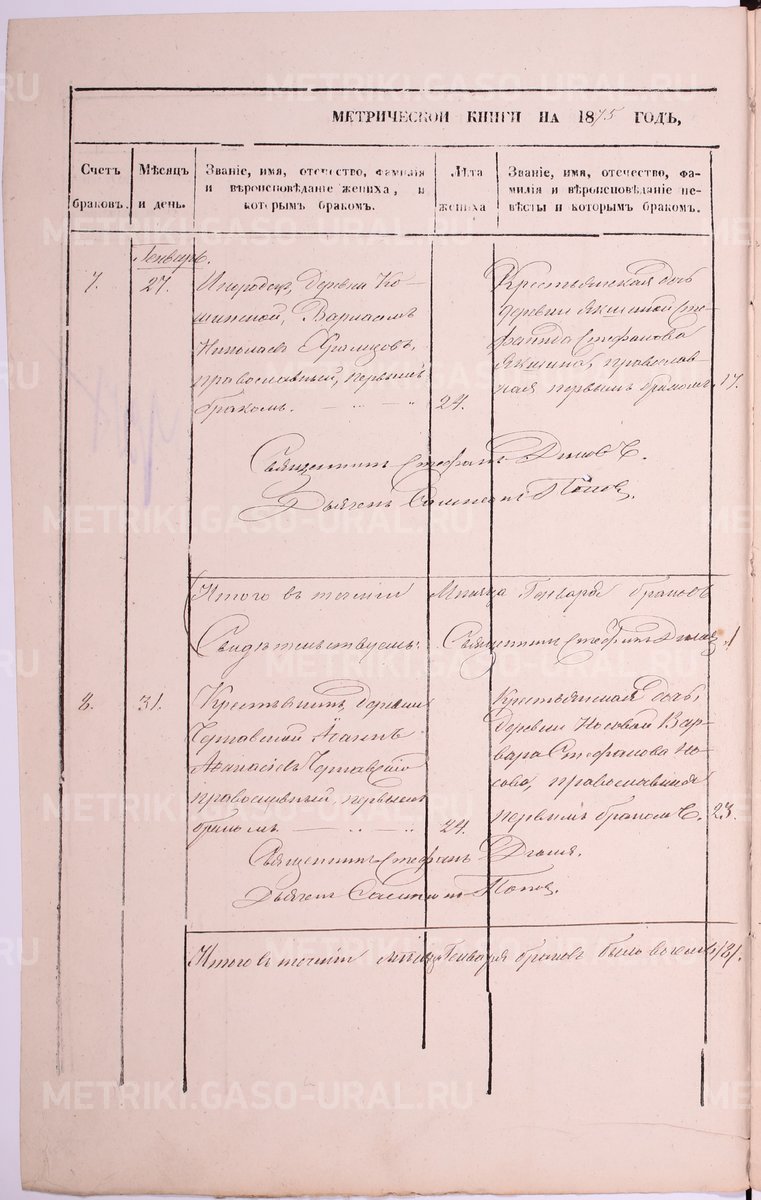 МЕТРИЧЕСКОЙ КНИГИ НА 1875 ГОДЪ,
Счетъ браковъ.
Мѣсяцъ и день.
Званіе, имя, отечество, фамилія
и вѣроисповѣданіе жениха, и
которымъ бракомъ.
Лѣта
жениха
Званіе, имя, отечество, фа-
милія и вѣроисповѣданіе не-
вѣсты и которымъ бракомъ.
Генварь.
7.
27.
Деревни Ко-
Варлаамъ
Николаевъ
православный, первымъ
бракомъ.
24.
Крестьянская дочь
деревни Якшиной Сте-
фанида Стефанова
Якшина, православ-
ная первымъ бракомъ. 17.
Священникъ Стефанъ
Дьяченъ Попов.
Итого въ теченіи Месяца Генваря браковъ
Свидетельствуемъ: Священникъ Стефанъ
8.
31.
Крестьянинъ, деревни
православный, первымъ
бракомъ
24.
Крестьянская дочь,
деревни Носовой Вар-
вара Стефанова Но-
сова, православная
первымъ бракомъ. 23.
Священникъ Стефанъ
Попов.
Итого въ теченіи месяца Генваря браковъ было восемь /8/.
METRIKI.GASO-URAL.RU